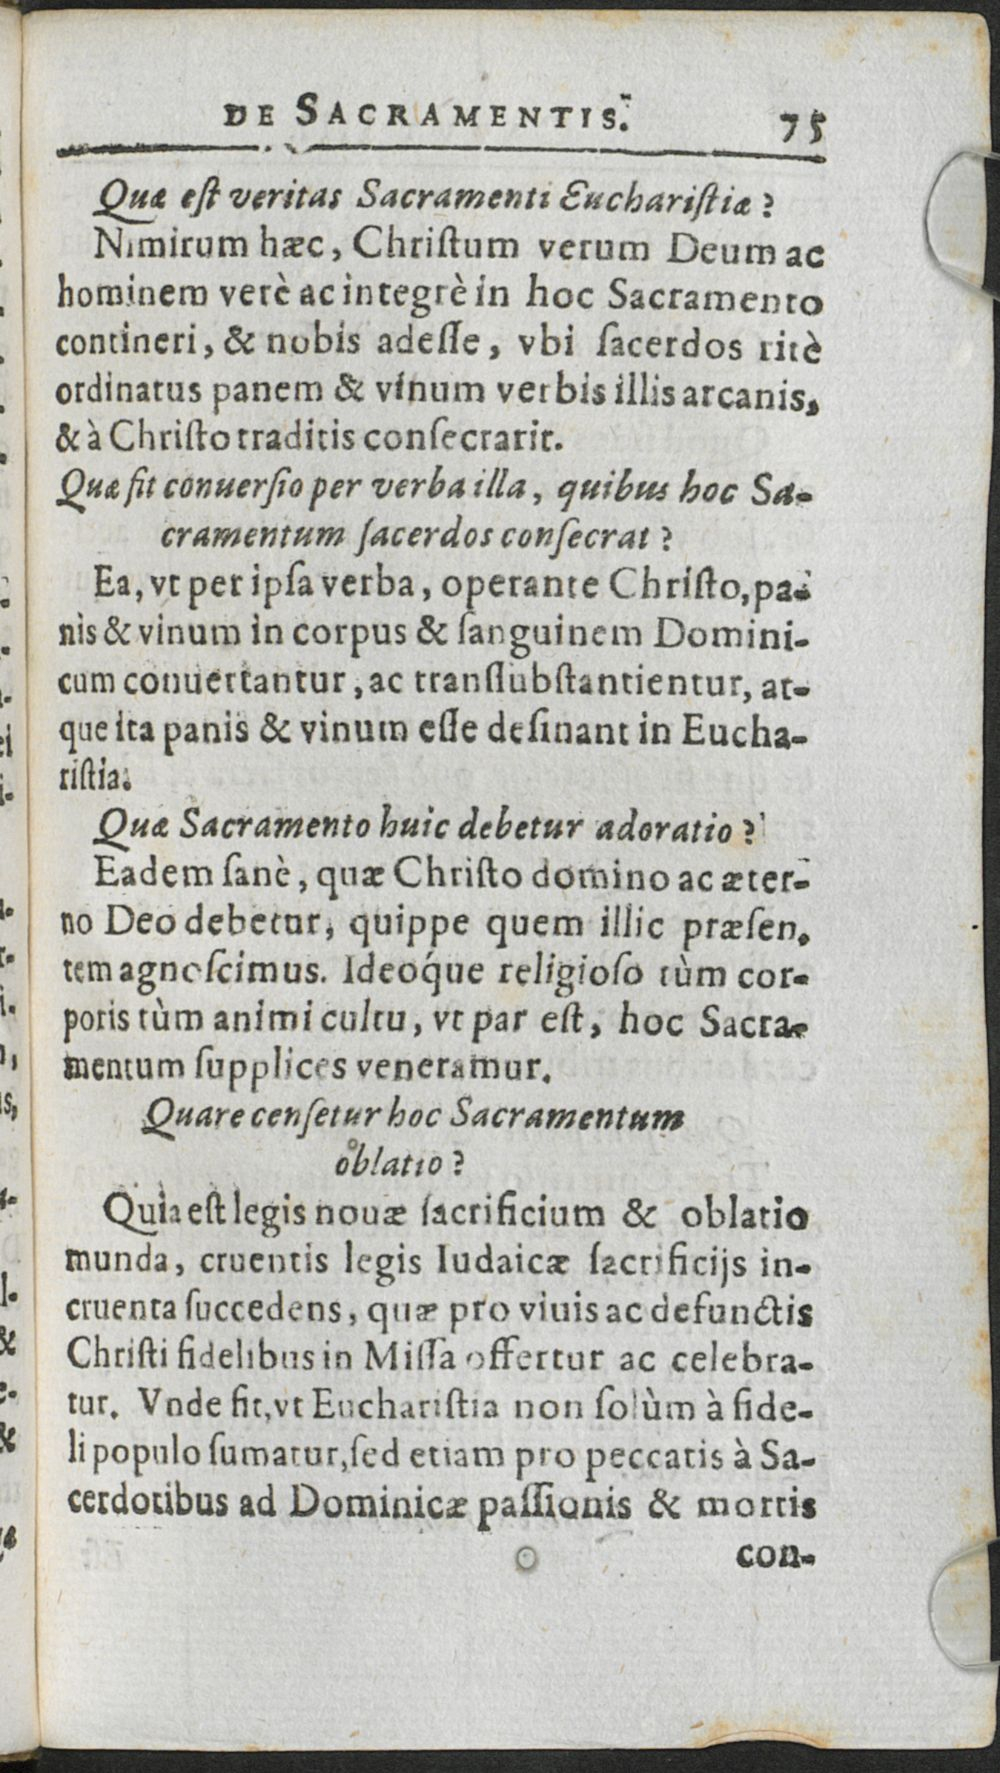 DE SACRAMENTIS. 75
Quæ eſt veritas Sacramenti Euchariſtiæ?
Nimirum hæc, Chriſtum verum Deum ac
hominem verè ac integrè in hoc Sacramento
contineri, & nobis adeſſe, vbi ſacerdos ritè
ordinatus panem & vinum verbis illis arcanis,
& à Chriſto traditis conſecrarit.
Quæ fit conuerſio per verba illa, quibus hoc Sa-
cramentum ſacerdos conſecrat?
Ea, vt per ipſa verba, operante Chriſto, pa-
nis & vinum in corpus & ſanguinem Domini-
cum conuertantur, ac transſubſtantientur, at-
que ita panis & vinum eſſe deſinant in Eucha-
riſtia.
Quæ Sacramento huic debetur adoratio?
Eadem ſanè, quæ Chriſto domino ac æter-
no Deo debetur, quippe quem illic præſen.
tem agnoſcimus. Ideoq́ue religioſo tùm cor-
poris tùm animi cultu, vt par eſt, hoc Sacra-
mentum ſupplices veneramur.
Quare cenſetur hoc Sacramentum
oblatio?
Quia eſt legis nouæ ſacrificium & oblatio
munda, cruentis legis Iudaicæ ſacrificijs in-
cruenta ſuccedens, quæ pro viuis ac defunctis
Chriſti fidelibus in Miſſa offertur ac celebra-
tur. Vnde fit, vt Euchariſtia non ſolùm à fide-
li populo ſumatur, ſed etiam pro peccatis à Sa-
cerdotibus ad Dominicæ paſſionis & mortis
con-